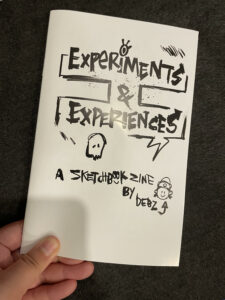 EXPERIMENTS
&
EXPERIENCES
A SKETCHBOOK ZINE
BY DEBZ